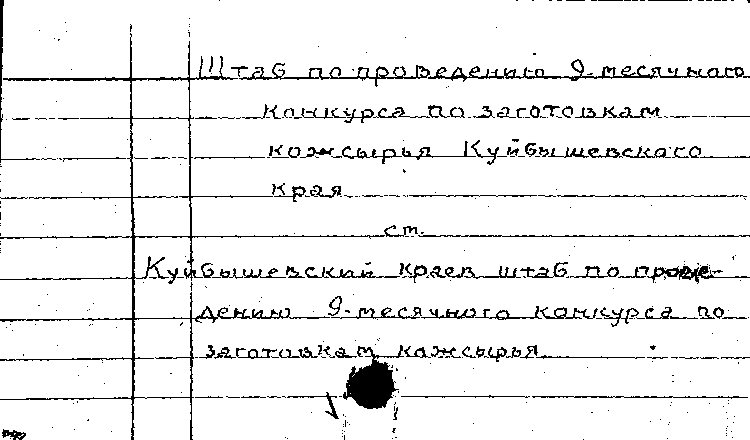 Штаб по проведению 9-месячного
конкурса по заготовкам
кожсырья Куйбышевского
края
ст.
Куйбышевский краев штаб по прове-
дению 9-месячного конкурса по
заготовкам кожсырья